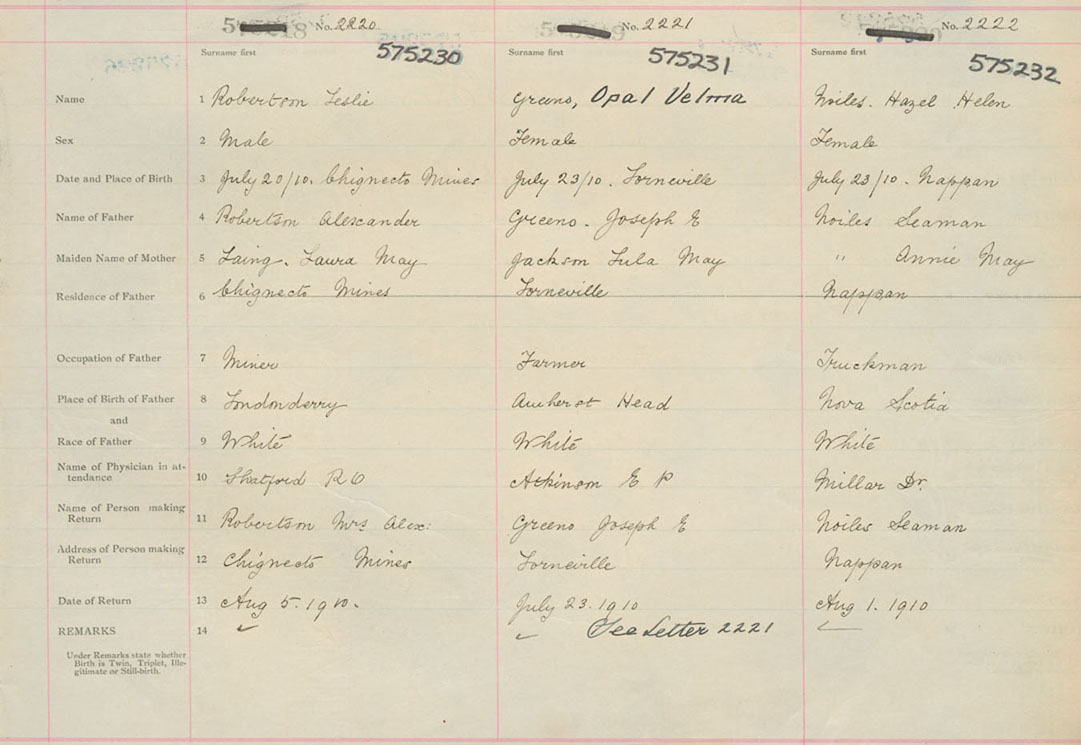 No. 2220 No. 2221 No. 2222
Surname first 575230 Surname first 575231 Surname first 575232
Name 1 Robertson Leslie Greeno, Opal Velma Noiles. Hazel Helen
Sex 2 Male Female Female
Date and Place of Birth 3 July 20/10. Chignecto Mines July 23/10. Lorneville July 23/10. Nappan
Name of Father 4 Robertson Alexcander Greeno. Joseph E Noiles Seaman
Maiden Name of Mother 5 Laing. Laura May Jackson Lula May " Annie May
Residence of Father 6 Chignecto Mines Lorneville Nappan
Occupation of Father 7 Miner Farmer Truckman
Place of Birth of Father 8 Londonderry Amherst Head Nova Scotia
and
Race of Father 9 White White White
Name of Physician in at-
tendance 10 Shatford R O Atkinson E P Millar Dr.
Name of Person making
Return 11 Robertson Mrs Alex: Greeno Joseph E Noiles Seaman
Address of Person making
Return 12 Chignecto Mines Lorneville Nappan
Date of Return 13 Aug 5. 1910. July 23. 1910 Aug 1. 1910
REMARKS 14 ✓ ✓ See Letter 2221
Under Remarks state whether
Birth is Twin, Triplet, Ille-
gitimate or Still-birth.